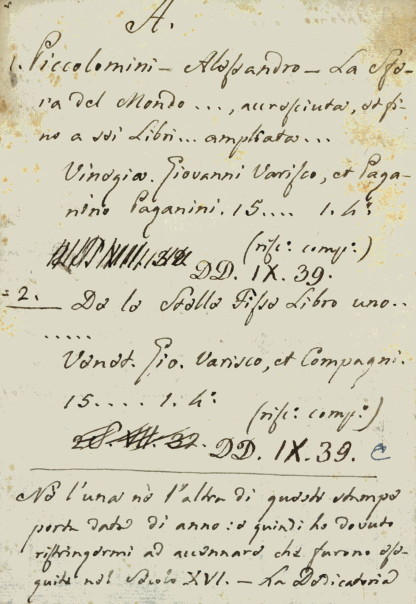 A.
1. Piccolomini - Alessandro - La Sfe-
ra del Mondo ..., accresciuta, et fi-
no a sei Libri... ampliata...
Vinegia. Giovanni Varisco, et Paga-
nino Paganini. 15.... 1. 4º.
(rife. comp.)
DD. IX. 39.
= 2. De le Stelle Fisse Libro uno..
.....
Venet. Gio. Varisco, et Compagni.
15.... 1. 4º.
(rife. comp.)
DD. IX. 39. e
Nè l'una nè l'altra di queste stampe
porta data di anno: e quindi ho dovuto
ristringermi ad accennare che furono ese-
guite nel Secolo XVI. - La Dedicatoria